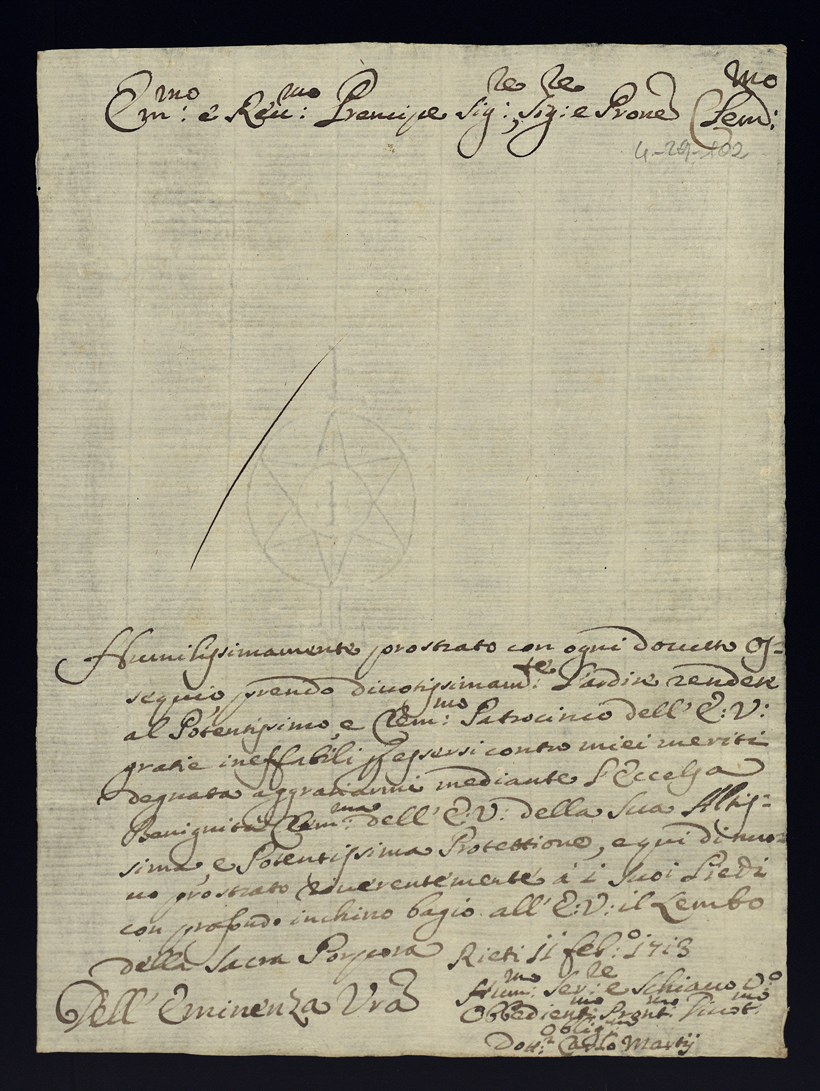 Em.mo e Reu.mo Prencipe Sig.re, Sig.re e Prone Clem.mo
4-29-102
Humilissimamente prostrato con ogni douuto os=
sequio prendo diuotissimam.te l'ardire rendere
al Potentissimo, e Clem.mo Patrocinio dell' E: V:
gratie ineffabili p essersi contro miei meriti
degnata aggratiarmi mediante l'Eccelsa
Benignità Clem.ma dell' E: V: della Sua Altis=
sima, e Potentissima Protettione, e qui di nuo=
uo prostrato riuerentemente à i Suoi Piedi
con profondo inchino bagio all' E: V: il Lembo
della Sacra Porpora Rieti 11 feb.o 1713
Dell' Eminenza Vra
Hum.mo Ser.re e Schiauo O.o
Obbedient.mo Pront.mo Diuot.mo
Oblig.mo
Dott.r Carlo Martij